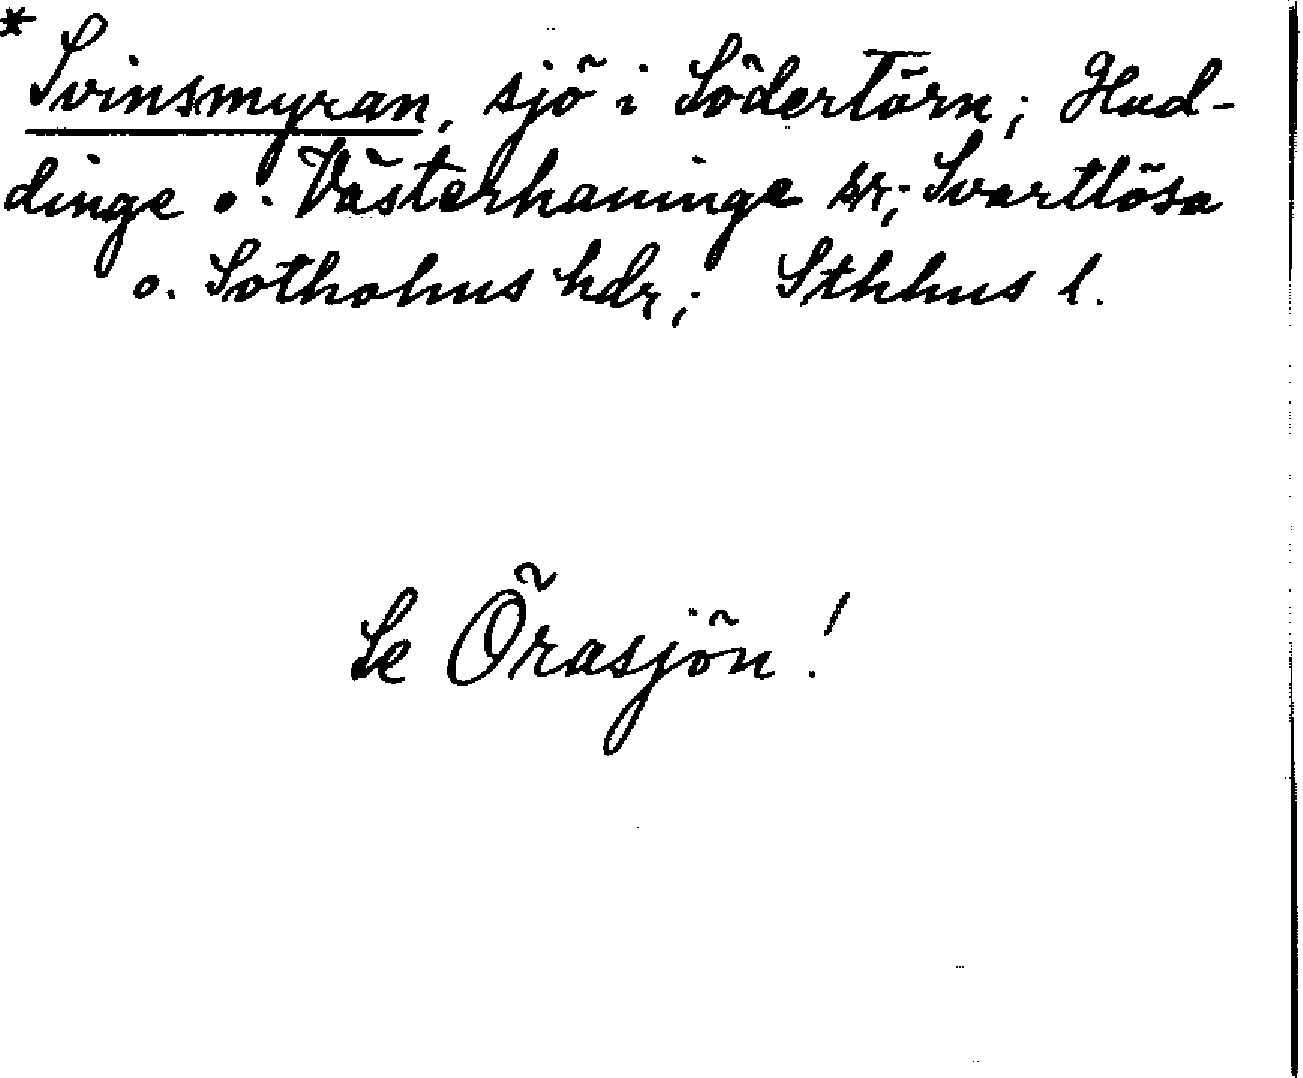 * Svinsmyran, sjö i Södertörn; Hud-
dinge o. Västerhaninge sr; Svartlösa
o. Sotholms hdr; Sthlms l.
Se Örasjön!